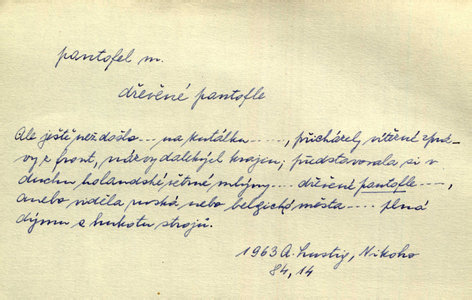 pantofel m.
dřevěné pantofle
Ale ještě než došlo --- na kutálku ----, přicházely vítězné zprá-
vy z front, názvy dalekých krajin; představovala si v
duchu holandské větrné mlýny ---- dřevěné pantofle ---,
anebo viděla ruská nebo belgická města ---- plná
dýmu a hukotu strojů.
1963 A. Lustig, Nikoho
84, 14